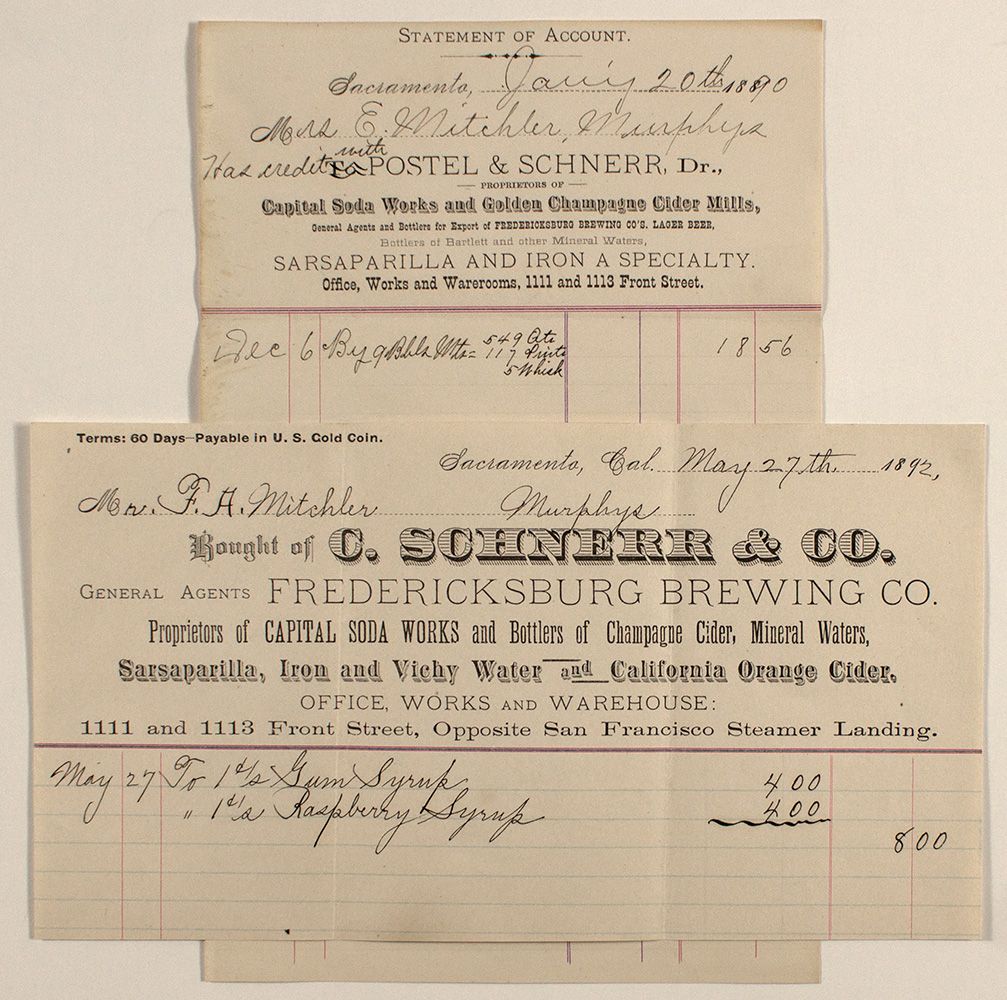 STATEMENT OF ACCOUNT.
Sacramento, Jan'y 20th 1890
Mrs E. Mitchler, Murphys
Has credit with
To POSTEL & SCHNERR, Dr.,
PROPRIETORS OF
Capital Soda Works and Golden Champagne Cider Mills,
General Agents and Bottlers for Export of FREDERICKSBURG BREWING CO'S. LAGER BEER,
Bottlers of Bartlett and other Mineral Waters,
SARSAPARILLA AND IRON A SPECIALTY.
Office, Works and Warerooms, 1111 and 1113 Front Street.
Dec 6 By 9 Bbls Mts = 549 Qts 18 56
117 Pints
5 Whisk
Terms: 60 Days—Payable in U. S. Gold Coin.
Sacramento, Cal. May 27th 1892,
Mr. F. A. Mitchler Murphys
Bought of C. SCHNERR & CO.
GENERAL AGENTS FREDERICKSBURG BREWING CO.
Proprietors of CAPITAL SODA WORKS and Bottlers of Champagne Cider, Mineral Waters,
Sarsaparilla, Iron and Vichy Water and California Orange Cider.
OFFICE, WORKS AND WAREHOUSE:
1111 and 1113 Front Street, Opposite San Francisco Steamer Landing.
May 27 To 1 c/s Gum Syrup 4 00
" 1 c/s Raspberry Syrup 4 00
8 00